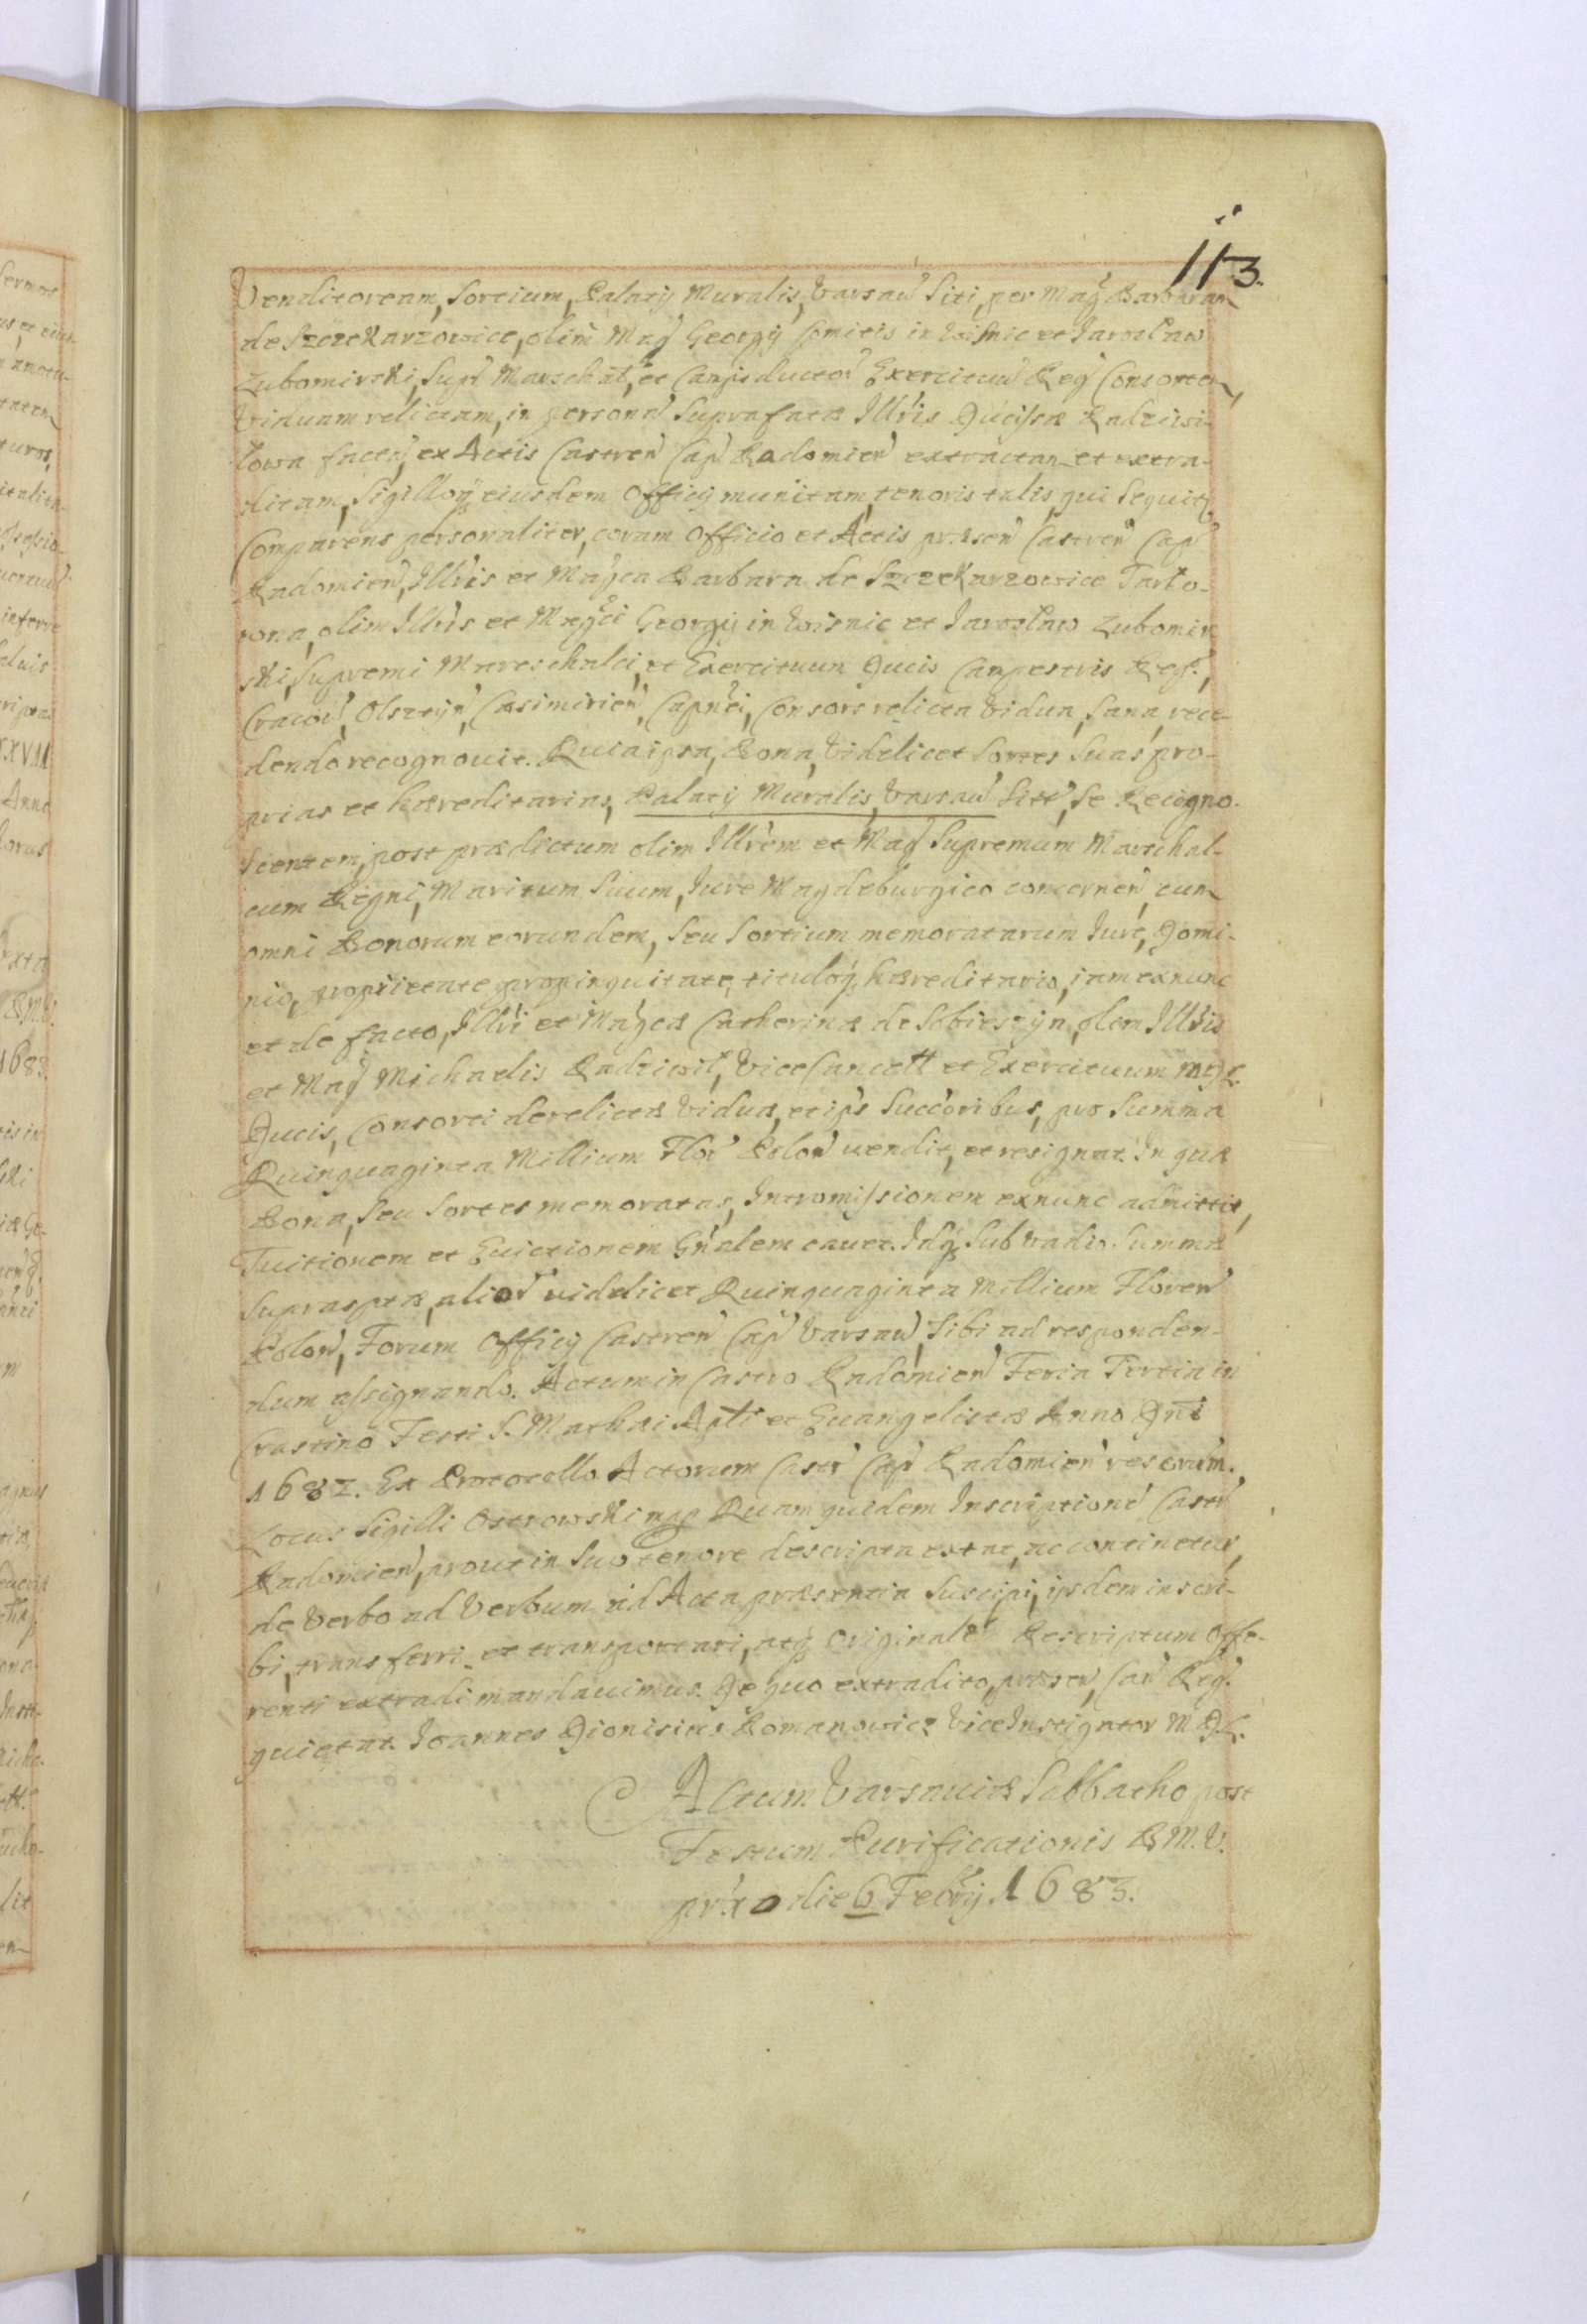 113.
Venditoream, Sortium, Palatij Muralis, Varsaw Siti, per Mag Barbaram
de Szczekarzowice, olim Mag Georgij Comitis in Wisnic et Jaroslaw
Lubomirski, Supr Marschal, et Campiductor Exercituu Reg Consortem,
Viduam relictam, in persona Suprafatæ Illris Ducissæ Radziwi-
lowa facta, ex Actis Castren Cap Radomien extractam et extra-
ditam, Sigilloq eiusdem Officij munitam, tenoris talis, qui Sequit
Comparens personaliter, coram Officio et Actis præsen Castren Cap
Radomien, Illris et Magca Barbara de Szczekarzowice Tarlo-
wna, olim Illris et Magci Georgij in Wisnic et Jaroslaw Lubomir
ski, Supremi Mareschalci, et Exercituum Ducis Campestris Reg,
Cracov, Olsztyn, Casimirien, Capnei, Consors relicta Vidua, Sana, rece-
dendo recognouit. Quia ipsa, Bona, Videlicet Sortes Suas pro-
prias et hæreditarias, Palatij Muralis, Varsaw Sitt, Se Recogno-
scentem, post prædictum olim Illrem et Mag Supremum Marschal-
cum Regni, Maritum Suum, Jure Magdeburgico concernen, cum
omni Bonorum eorundem, Seu Sortium memoratarum Jure, Domi-
nio, proprietate, propinquitate, tituloq hæreditario, iam exnunc
et de facto, Illri et Magcæ Catherinæ de Sobieszyn, olim Illris
et Mag Michaelis Radziwil, ViceCancell et Exercituum MDL.
Ducis, Consorti derelictæ Viduæ, et ips Succoribus, pro Summa
Quinquaginta Millium Flor Polon vendit, et resignat. In quæ
Bona, Seu Sortes memoratas, Intromissionem exnunc admittit,
Tuitionem et Euictionem Gnalem cauet. Idq Sub vadio Summæ
Suprasptæ, alior videlicet Quinquaginta Millium Floren
Polon, Forum Officij Castren Cap Varsaw, Sibi ad responden-
dum assignando. Actum in Castro Radomien Feria Tertia in
Crastino Festi S. Mathæi Apli et Euangelistæ Anno Dni
1682. Ex Protocollo Actorum Castr Cap Radomien rescrum.
Locus Sigilli Ostrowski mp Quam quidem Inscriptione Castr
Radomien, prout in Suo tenore descripta extat, ac continetur,
de Verbo ad Verbum ad Acta præsentia Suscipi, ijsdem inscri-
bi, transferri et transportari, atq Originale Rescriptum Offe-
renti extradi mandauimus. De quo extradito, præsen Can Reg
quietat. Joannes Dionisius Romanowicz ViceInstigator MDL.
Actum Varsauiæ Sabbatho post
Festum Purificationis B.M.V.
prxo die 6 Febrij. 1683.